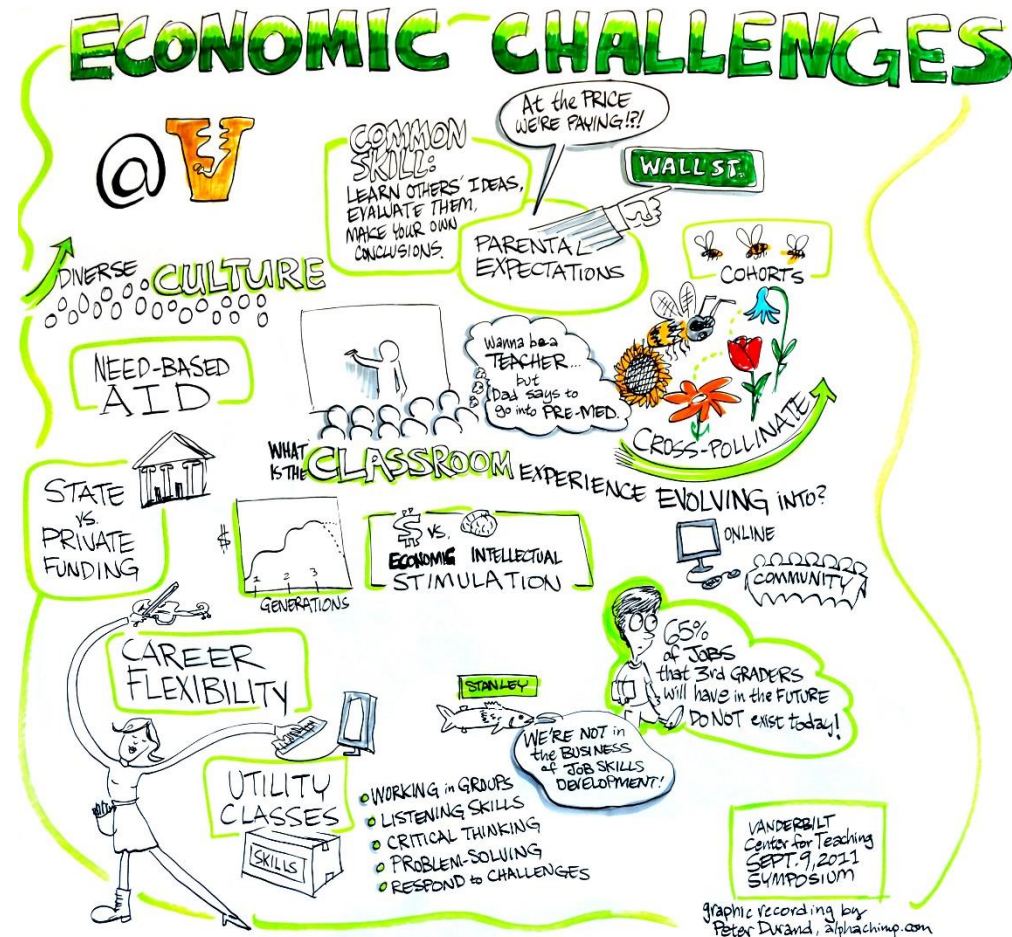 ECONOMIC CHALLENGES
@V
COMMON
SKILL:
LEARN OTHERS' IDEAS,
EVALUATE THEM,
MAKE YOUR OWN
CONCLUSIONS.
At the PRICE
WE'RE PAYING!?!
WALL ST.
PARENTAL
EXPECTATIONS
COHORTS
DIVERSE CULTURE
NEED-BASED
AID
Wanna be a
TEACHER...
but
Dad says to
go into PRE-MED.
CROSS-POLLINATE
WHAT
IS THE CLASSROOM EXPERIENCE EVOLVING INTO?
STATE
vs.
PRIVATE
FUNDING
$
1 2 3
GENERATIONS
$ vs.
ECONOMIC INTELLECTUAL
STIMULATION
ONLINE
COMMUNITY
65%
of JOBS
that 3rd GRADERS
will have in the FUTURE
DO NOT exist today!
CAREER
FLEXIBILITY
STANLEY
WE'RE NOT in
the BUSINESS
of JOB SKILLS
DEVELOPMENT!
UTILITY
CLASSES
SKILLS
WORKING in GROUPS
LISTENING SKILLS
CRITICAL THINKING
PROBLEM-SOLVING
RESPOND to CHALLENGES
VANDERBILT
Center for Teaching
SEPT. 9, 2011
SYMPOSIUM
graphic recording by
Peter Durand, alphachimp.com